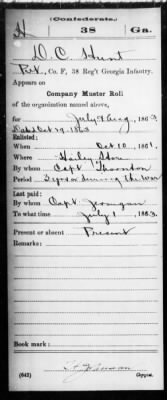 (Confederate.)
H 38 Ga.
D. C. Hunt
Pvt., Co. F, 38 Reg't Georgia Infantry.
Appears on
Company Muster Roll
of the organization named above,
for July & Aug, 1863
Enlisted:
When Oct 10, 1861.
Where
By whom Capt Thornton
Period 3 yrs or during the war
Last paid:
By whom Capt. Jernigan
To what time July 1, 1863.
Present or absent Present
Remarks:
Book mark:
(642) Copyist.